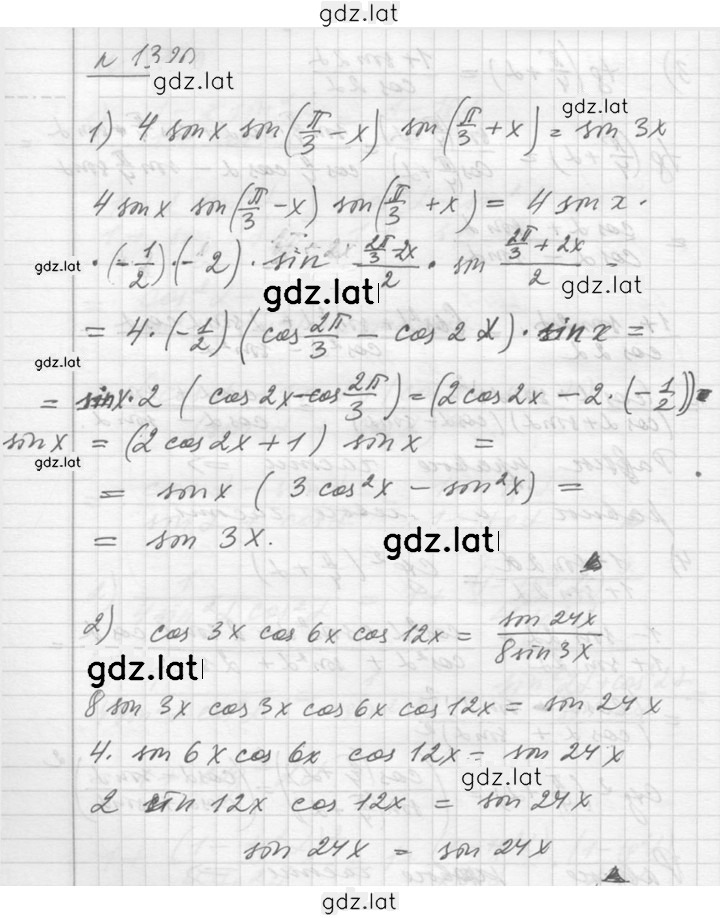 gdz.lat
n 1320
gdz.lat
gdz.lat
1) 4 sin x sin(π/3 - x) sin(π/3 + x) = sin 3x
4 sin x sin(π/3 - x) sin(π/3 + x) = 4 sin x ·
gdz.lat
· (-1/2) · (-2) · sin (2π/3 - 2x)/2 · sin (2π/3 + 2x)/2 =
gdz.lat
gdz.lat
= 4 · (-1/2) (cos 2π/3 - cos 2x) · sin x =
gdz.lat
= sin x · 2 (cos 2x - cos 2π/3) = (2 cos 2x - 2 · (-1/2)) ·
sin x = (2 cos 2x + 1) sin x =
gdz.lat
= sin x (3 cos²x - sin²x) =
= sin 3x.
gdz.lat
2) cos 3x cos 6x cos 12x = sin 24x / 8 sin 3x
gdz.lat
8 sin 3x cos 3x cos 6x cos 12x = sin 24x
4 · sin 6x cos 6x cos 12x = sin 24x
gdz.lat
2 sin 12x cos 12x = sin 24x
sin 24x = sin 24x
gdz.lat